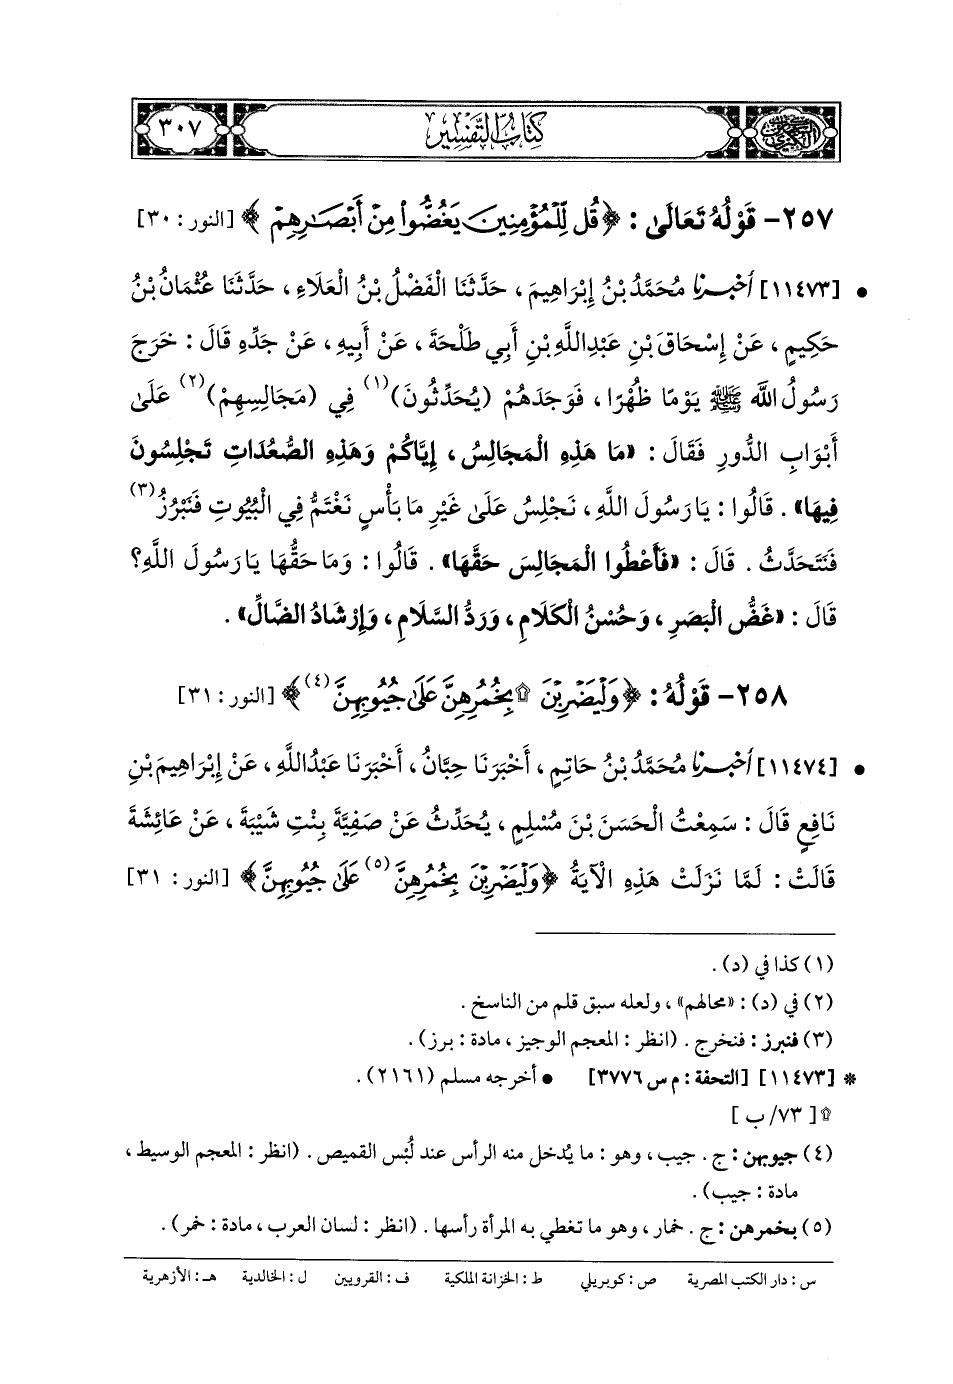 السنن الكبرى
كتاب التفسير
٣٠٧
٢٥٧- قَوْلُهُ تَعَالَىٰ : ﴿ قُل لِّلْمُؤْمِنِينَ يَغُضُّوا۟ مِنْ أَبْصَـٰرِهِمْ ﴾ [النور : ٣٠]
• [١١٤٧٣] أخبرنا مُحَمَّدُ بْنُ إِبْرَاهِيمَ ، حَدَّثَنَا الْفَضْلُ بْنُ الْعَلَاءِ ، حَدَّثَنَا عُثْمَانُ بْنُ
حَكِيمٍ ، عَنْ إِسْحَاقَ بْنِ عَبْدِاللَّهِ بْنِ أَبِي طَلْحَةَ ، عَنْ أَبِيهِ ، عَنْ جَدِّهِ قَالَ : خَرَجَ
رَسُولُ اللَّه ﷺ يَوْمًا ظُهْرًا ، فَوَجَدَهُمْ (يُحَدِّثُونَ)(١) فِي (مَجَالِسِهِمْ)(٢) عَلَىٰ
أَبْوَابِ الدُّورِ فَقَالَ : «مَا هَذِهِ الْمَجَالِسُ ، إِيَّاكُمْ وَهَذِهِ الصُّعُدَاتِ تَجْلِسُونَ
فِيهَا» . قَالُوا : يَا رَسُولَ اللَّهِ ، نَجْلِسُ عَلَىٰ غَيْرِ مَا بَأْسٍ نَغْتَمُّ فِي الْبُيُوتِ فَنَبْرُزُ(٣)
فَنَتَحَدَّثُ . قَالَ : «فَأَعْطُوا الْمَجَالِسَ حَقَّهَا» . قَالُوا : وَمَا حَقُّهَا يَا رَسُولَ اللَّهِ؟
قَالَ : «غَضُّ الْبَصَرِ ، وَحُسْنُ الْكَلَامِ ، وَرَدُّ السَّلَامِ ، وَإِرْشَادُ الضَّالِّ» .
٢٥٨- قَوْلُهُ : ﴿ وَلْيَضْرِبْنَ ۩ بِخُمُرِهِنَّ عَلَىٰ جُيُوبِهِنَّ(٤) ﴾ [النور : ٣١]
• [١١٤٧٤] أخبرنا مُحَمَّدُ بْنُ حَاتِمٍ ، أَخْبَرَنَا حِبَّانُ ، أَخْبَرَنَا عَبْدُاللَّهِ ، عَنْ إِبْرَاهِيمَ بْنِ
نَافِعٍ قَالَ : سَمِعْتُ الْحَسَنَ بْنَ مُسْلِمٍ ، يُحَدِّثُ عَنْ صَفِيَّةَ بِنْتِ شَيْبَةَ ، عَنْ عَائِشَةَ
قَالَتْ : لَمَّا نَزَلَتْ هَذِهِ الْآيَةُ ﴿ وَلْيَضْرِبْنَ بِخُمُرِهِنَّ(٥) عَلَىٰ جُيُوبِهِنَّ ﴾ [النور : ٣١]
(١) كذا في (د) .
(٢) في (د) : «محالهم» ، ولعله سبق قلم من الناسخ .
(٣) فنبرز : فنخرج . (انظر : المعجم الوجيز ، مادة : برز) .
* [١١٤٧٣] [التحفة : م س ٣٧٧٦] • أخرجه مسلم (٢١٦١) .
۩ [ ٧٣/ ب ]
(٤) جيوبهن : ج . جيب ، وهو : ما يُدخل منه الرأس عند لُبْس القميص . (انظر : المعجم الوسيط ،
مادة : جيب) .
(٥) بخمرهن : ج . خمار ، وهو ما تغطي به المرأة رأسها . (انظر : لسان العرب ، مادة : خمر) .
س : دار الكتب المصرية ص : كوبريلي ط : الخزانة الملكية ف : القرويين ل : الخالدية هـ : الأزهرية